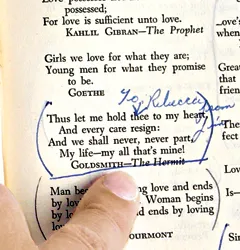 possessed;
For love is sufficient unto love.
KAHLIL GIBRAN—The Prophet
Girls we love for what they are;
Young men for what they promise
to be.
GOETHE
To Rebecca
from
Jim
Thus let me hold thee to my heart,
And every care resign:
And we shall never, never part,
My life—my all that's mine!
GOLDSMITH—The Hermit
Man be ing love and ends
by lov Woman begins
by lo nd ends by loving
lo
OURMONT
...ove's
when
Great
that
friends
fr
Lov
Is—
Sin